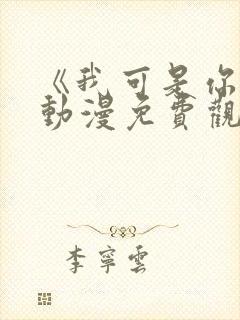 《我可是你
動漫免費觀
李寧雲